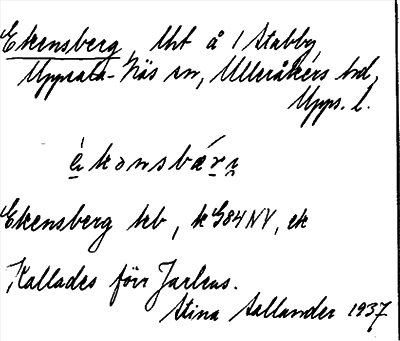 Ekensberg, lht å 1 Stabby,
Uppsala-Näs sn, Ulleråkers hd,
Upps. l.
ékɘnsbærɪ
Ekensberg hb, k G84NV, ek
Kallades förr Jarlens.
Stina Sallander 1937